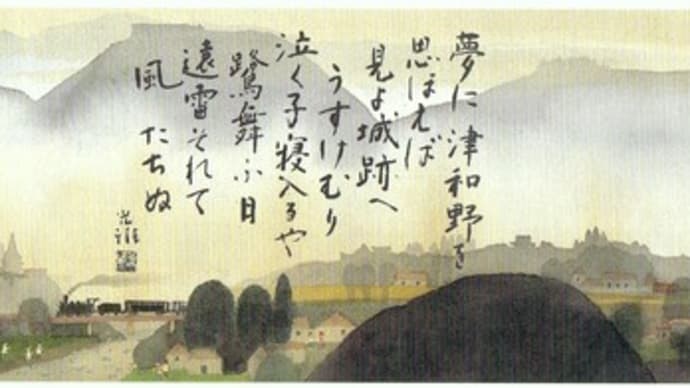 夢に津和野を
思ほえば
見よ城跡へ
うすけむり
泣く子寝入るや
鷺舞ふ日
遠雷それて
風たちぬ
光雅